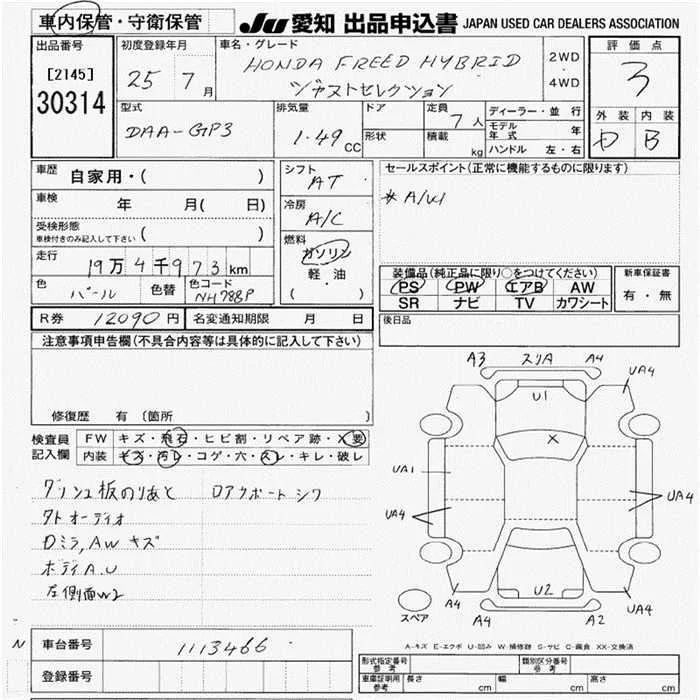 車内保管・守衛保管
JU 愛知 出品申込書 JAPAN USED CAR DEALERS ASSOCIATION
出品番号 初度登録年月 車名・グレード 評価点
[2145]
30314
25 7月
HONDA FREED HYBRID
ジャストセレクション
2WD
・
4WD
3
外装 内装
D B
型式 排気量 ドア 定員 ディーラー・並行
DAA-GP3 1.49CC 7人
モデル年式 年
形状 積載 kg ハンドル 左・右
車歴 自家用・( )
シフト AT
セールスポイント(正常に機能するものに限ります)
* A/W
車検 年 月( 日)
冷房 A/C
受検形態 ( )
車検付きのみ記入して下さい
燃料 ガソリン
軽・油
( ・ )
走行 19万4千973km
装備品(純正品に限り○をつけてください) 新車保証書
PS PW エアB AW
SR ナビ TV カワシート
有・無
色 パール 色替 色コード NH788P
R券 12090円 名変通知期限 月 日
後日品
注意事項申告欄(不具合内容等は具体的に記入して下さい)
修復歴 有 〔箇所 〕
検査員 FW キズ・飛石・ヒビ割・リペア跡・X要
記入欄 内装 キズ・汚レ・コゲ・穴・スレ・キレ・破レ
ダッシュ板のりあと ロアサポートシワ
外オーディオ
Dミラ,AWキズ
ボディA.U
左側面W2
A3 スリA A4
UA4
U1
X
UA1
UA4
UA4
U2
A4 A4 A2 UA4
スペア
A-キズ E-エクボ U-凹み W-補修跡 S-サビ C-腐食 XX-交換済
N 車台番号 1113466
登録番号
形式指定番号 参考 類別区分番号 参考
車庫証明用 参考 長さ cm 幅 cm 高さ cm